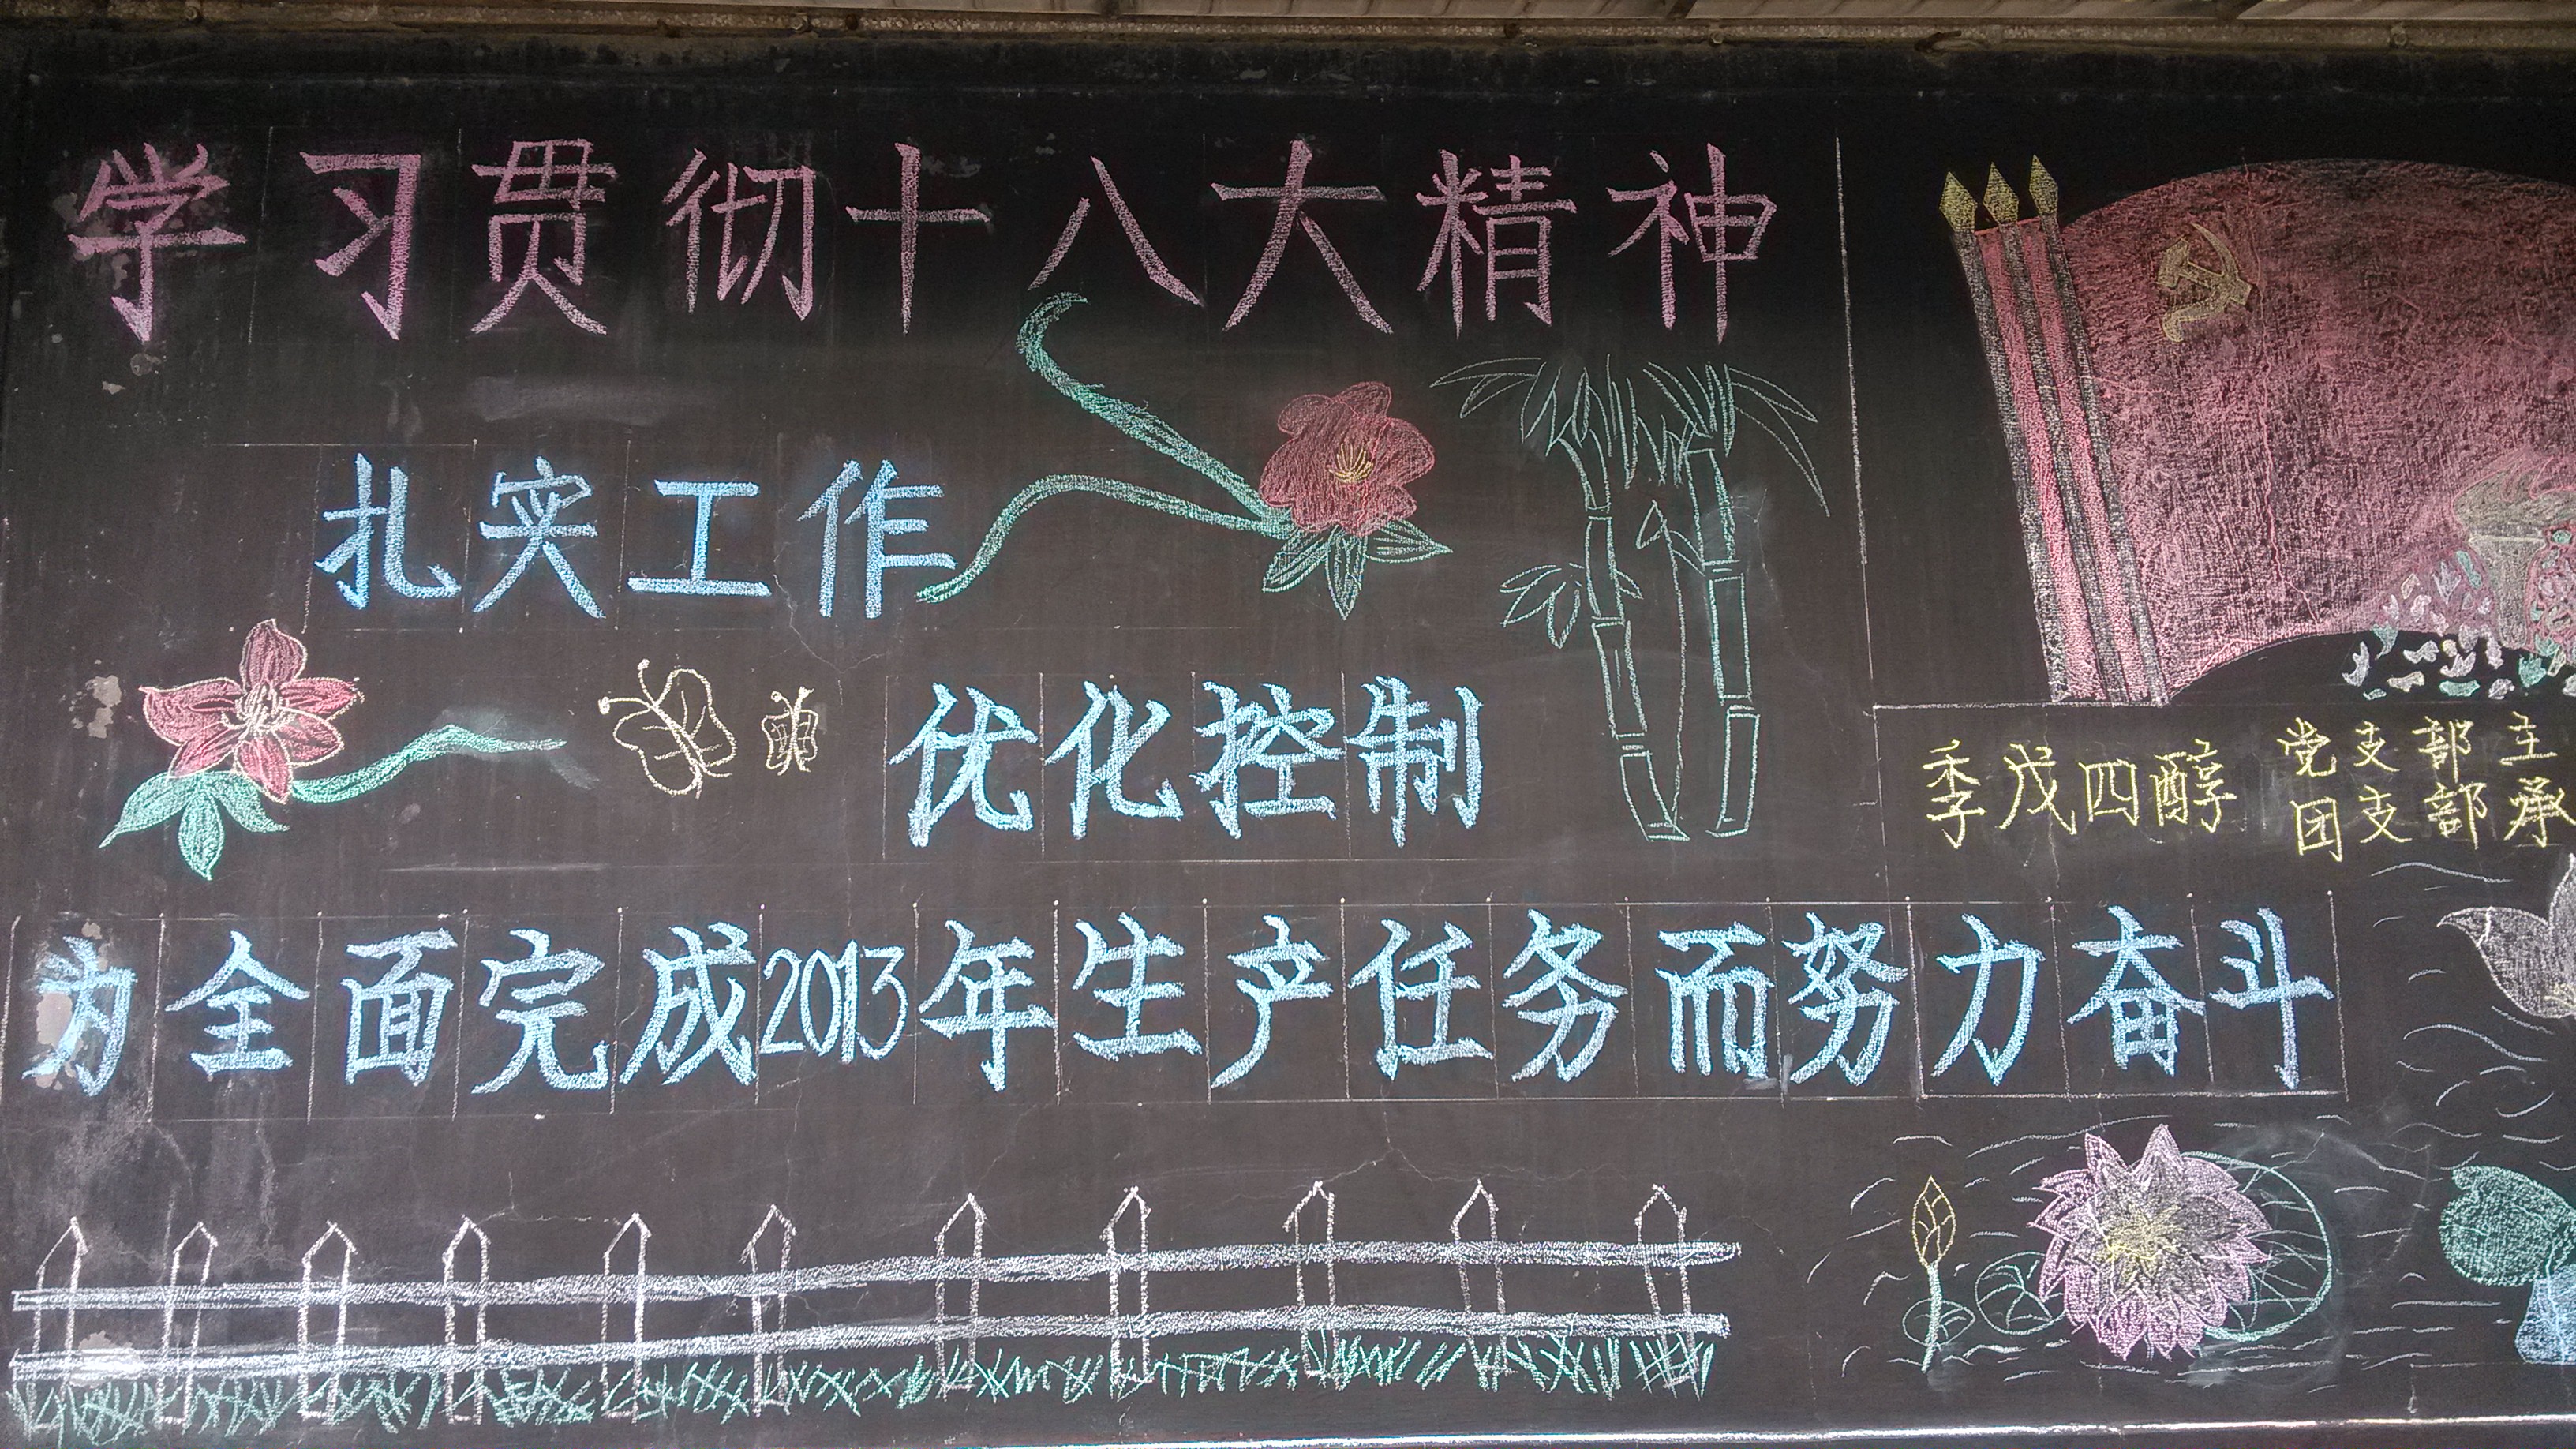 学习贯彻十八大精神
扎实工作
优化控制
为全面完成2013年生产任务而努力奋斗
季戊四醇 党支部主
团支部承